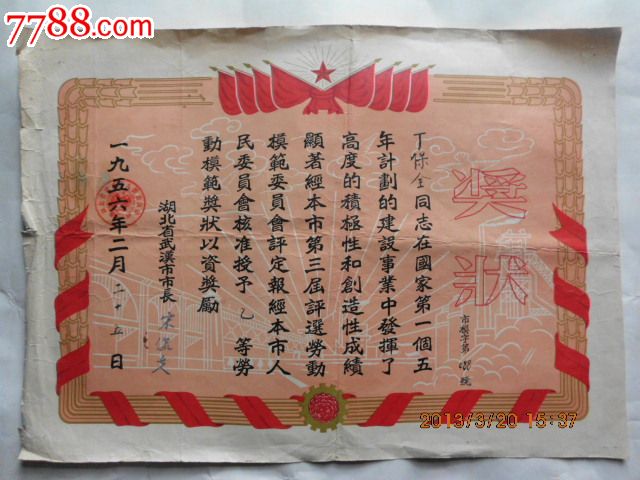 7788.com
獎狀
市模字第 號
丁保全同志在國家第一個五
年計劃的建設事業中發揮了
高度的積極性和創造性成績
顯著經本市第三屆評選勞動
模範委員會評定報經本市人
民委員會核准授予 乙 等勞
動模範獎狀以資獎勵
湖北省武漢市市長 宋侃夫
一九五六年二月二十五日
2013/3/20 15:37